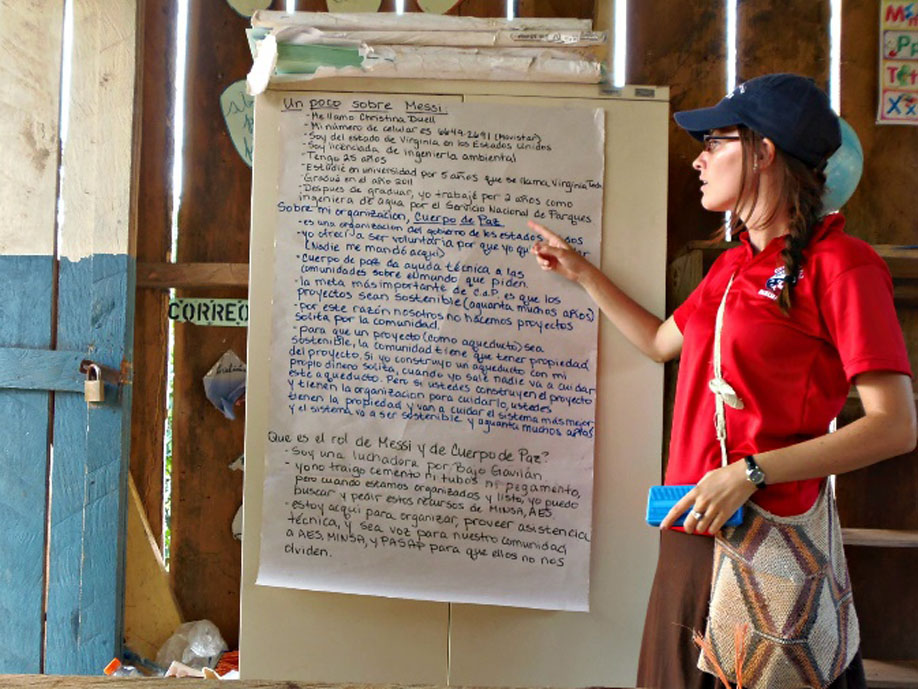 Un poco sobre Messi
-Me llamo Christina Duell
-Mi número de celular es 6649-2691 (Movistar)
-Soy del estado de Virginia en los Estados Unidos
-Soy licenciada de ingeniería ambiental
-Tengo 25 años
-Estudie en universidad por 5 años que se llama Virginia Tech
-Gradué en el año 2011
-Despues de graduar, yo trabajé por 2 años como
ingeniera de agua por el Servicio Nacional de Parques
Sobre mi organización, Cuerpo de Paz
-es una organización del gobierno de los estados
-yo ofrecí a ser voluntaria por que yo
(Nadie me mandó aquí)
-Cuerpo de paz da ayuda técnica a las
comunidades sobre el mundo que piden.
-la meta más importante de C.d.P. es que los
proyectos sean sostenible (aquanta muchos años)
-por este razón nosotros no hacemos proyectos
solita por la comunidad.
-para que un proyecto (como aqueducto) sea
sostenible, la comunidad tiene que tener propiedad
del proyecto. Si yo construyo un aqueducto con mi
propio dinero solita, cuando yo salé nadie va a cuidar
este aqueducto. Pero si ustedes construyen el proyecto
y tienen la organización para cuidarlo, ustedes
tienen la propiedad y van a cuidar el sistema más mejor
y el sistema va a ser sostenible y aguanta muchos años
Que es el rol de Messi y de Cuerpo de Paz?
-Soy una luchadora por Bajo Gavilán
-yo no traigo cemento ni tubos ni pegamento,
pero cuando estamos organizados y listo, yo puedo
buscar y pedir estos recursos de MINSA, AES
-estoy aqui para organizar, proveer asistencia
técnica, y sea voz para nuestro comunidad
a AES, MINSA, y PASAP para que ellos no nos
olviden.
CORREO